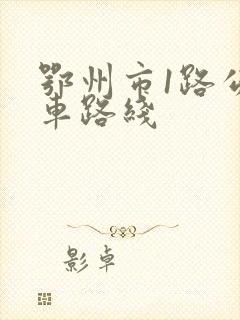 鄂州市1路公
车路线
影卓